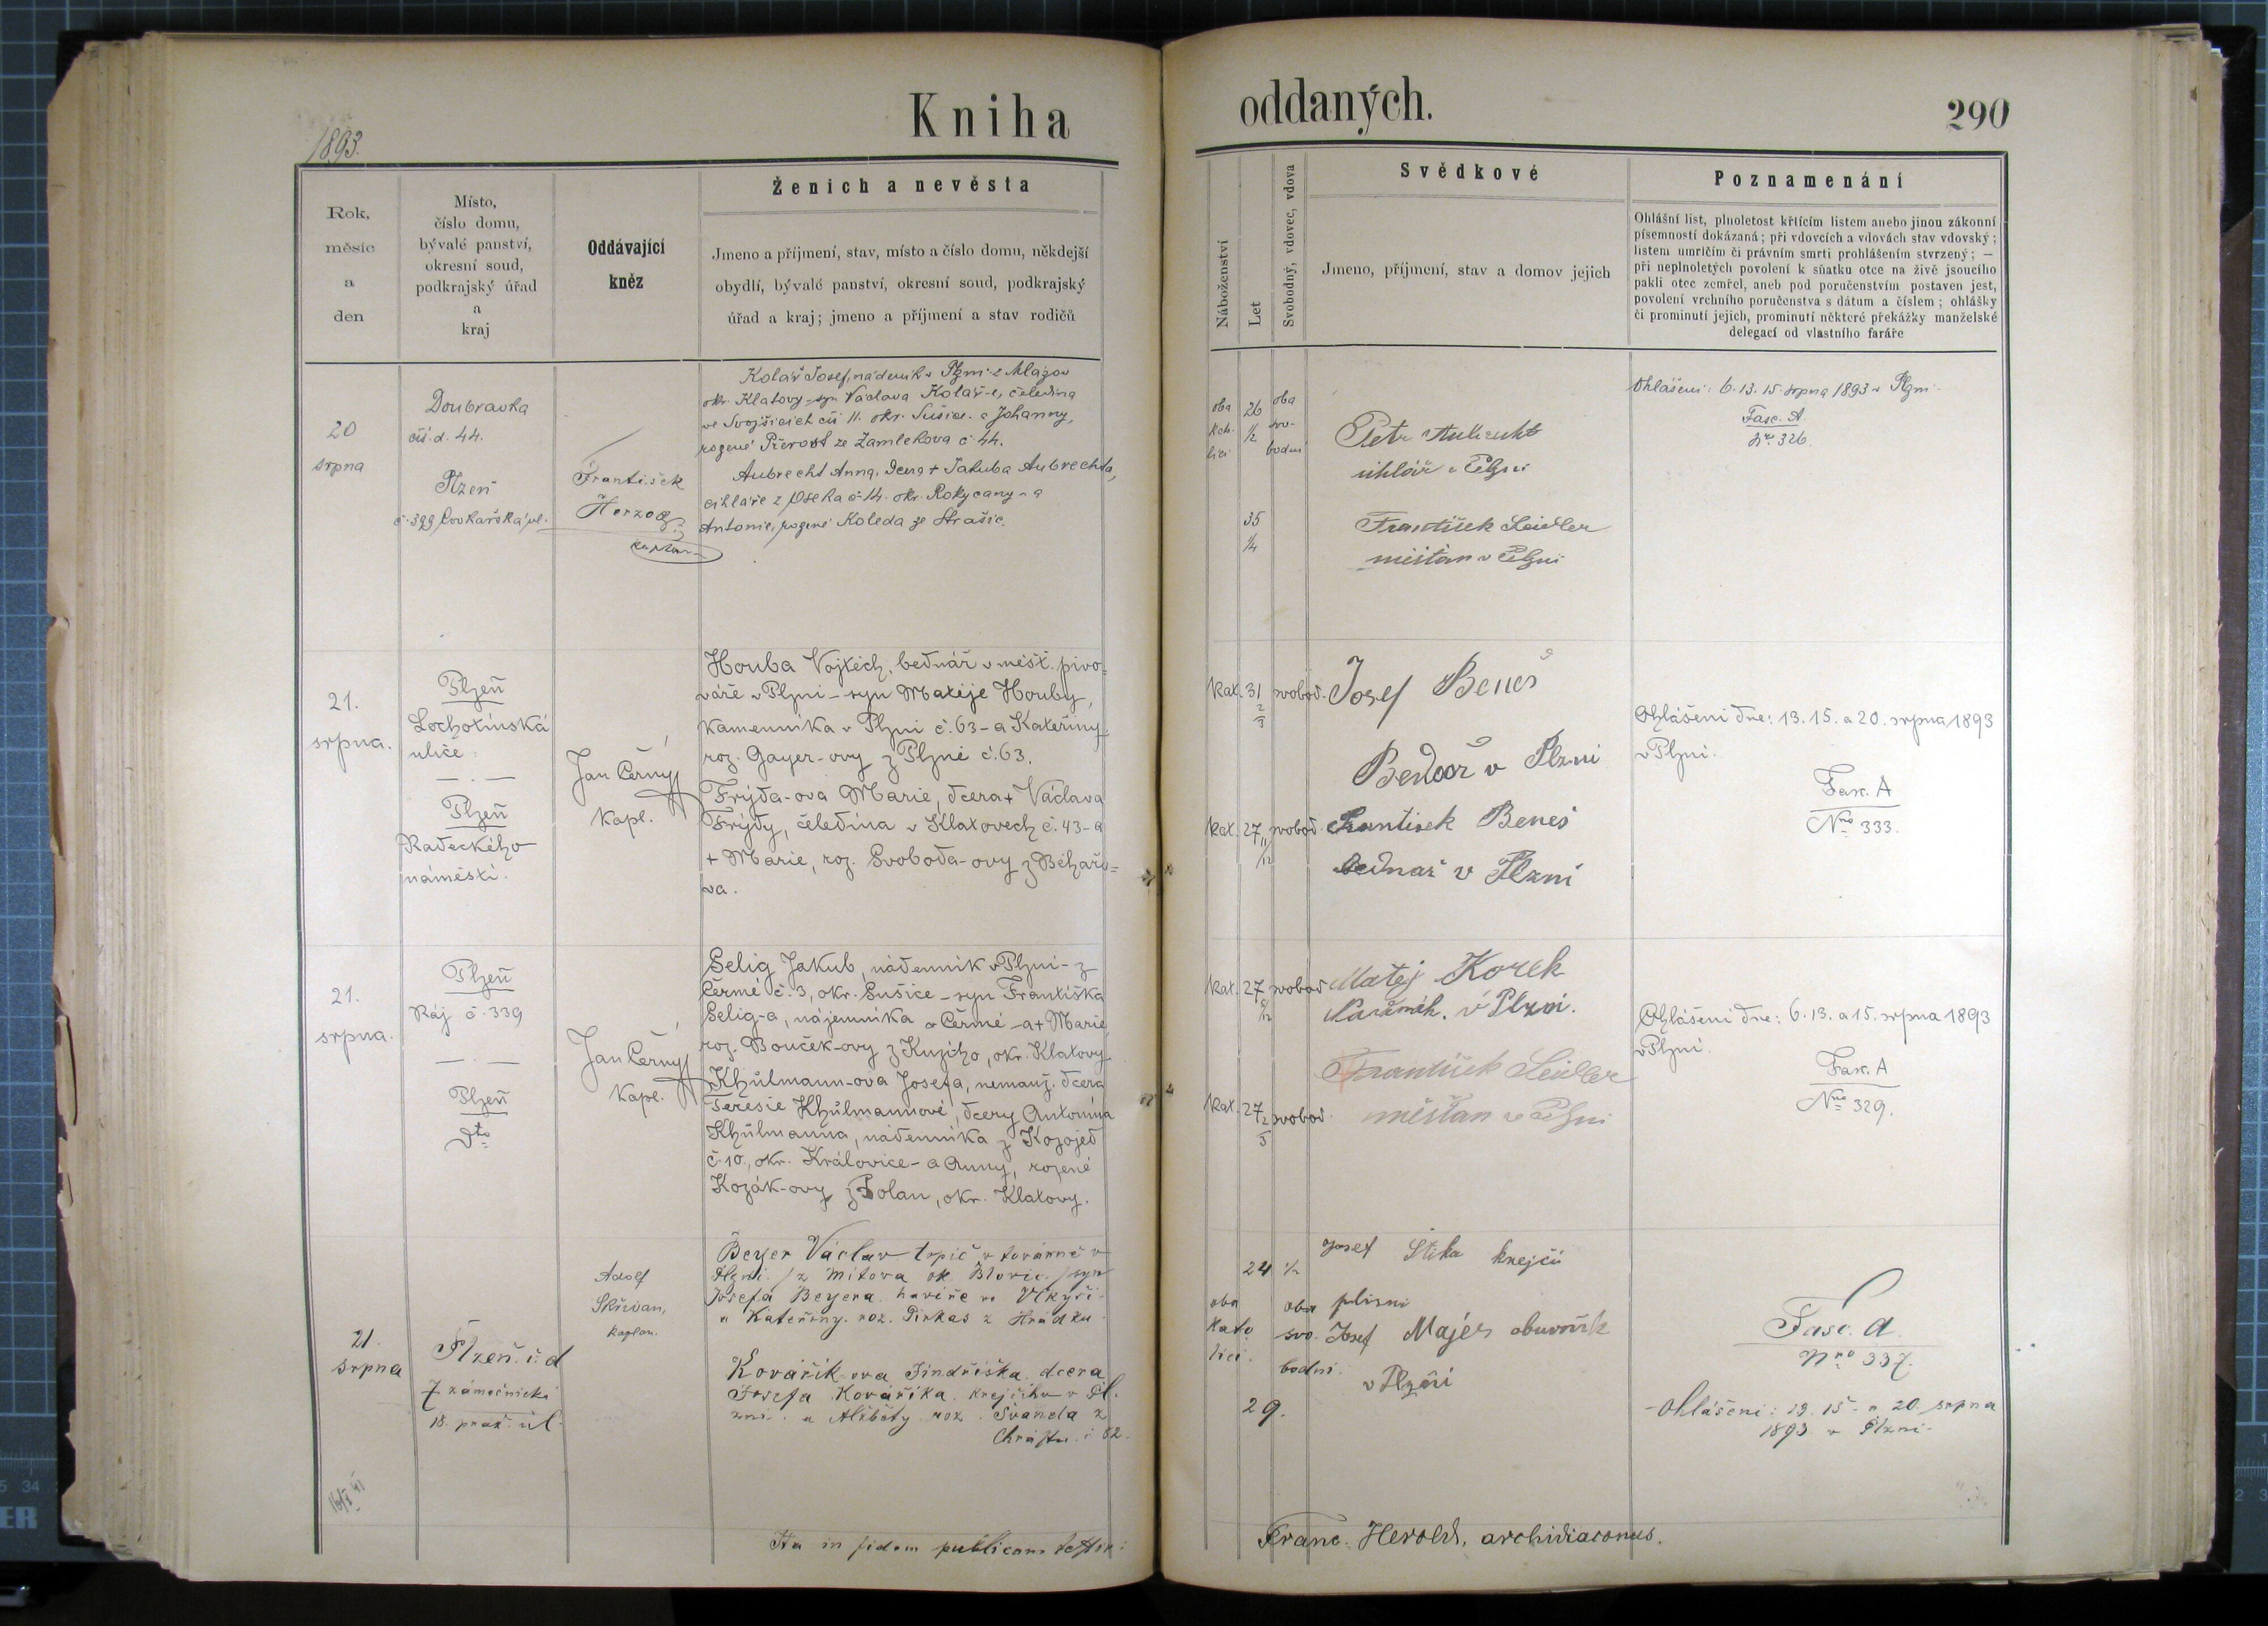 1893.
Kniha oddaných.
290
Rok,
měsíc
a
den
Místo,
číslo domu,
bývalé panství,
okresní soud,
podkrajský úřad
a
kraj
Oddávající
kněz
Ženich a nevěsta
Jmeno a příjmení, stav, místo a číslo domu, někdejší
obydlí, bývalé panství, okresní soud, podkrajský
úřad a kraj; jmeno a příjmení a stav rodičů
Náboženství
Let
Svobodný, vdovec, vdova
Svědkové
Jmeno, příjmení, stav a domov jejich
Poznamenání
Ohlášní list, plnoletost křtícím listem anebo jinou zákonní
písemností dokázaná; při vdovcích a vdovách stav vdovský;
listem umrlčím či právním smrti prohlášením stvrzený; —
při neplnoletých povolení k sňatku otce na živě jsoucího
pakli otec zemřel, aneb pod poručenstvím postaven jest,
povolení vrchního poručenstva s dátum a číslem; ohlášky
či prominutí jejich, prominutí některé překážky manželské
delegací od vlastního faráře
20
srpna
Doubravka
čís. d. 44.
Plzeň
č. 399 Cvokařská ul.
František
Herzog
kaplan
Kolář Josef, nádeník v Plzni z Mlázov
okr. Klatovy – syn Václava Kolář-e, čeledína
ve Svojšicích čís 11. okr. Sušice a Johanny,
rozené Přerost ze Zamlekova č. 44.
Aubrecht Anna, dcera + Jakuba Aubrechta,
cihláře z Oseka č. 14. okr. Rokycany – a
Antonie, rozené Koleda ze Strašic.
oba
kth.
lici
26
1/2
oba
svo-
bodni
35
1/4
Petr Aubrecht
uhlíř v Plzni
František Seidler
měšťan v Plzni
Ohlášeni: 6. 13. 15. srpna 1893 v Plzni.
Fasc. A.
Nro. 326.
21.
srpna.
Plzeň
Lochotínská
ulice
Plzeň
Radeckého
náměstí.
Jan Černý
kapl.
Houba Vojtěch, bednář v měšť. pivo-
váře v Plzni – syn Matěje Houby,
kamenníka v Plzni č. 63 – a Kateřiny
roz. Gayer-ovy z Plzně č. 63.
Frýda-ova Marie, dcera + Václava
Frýdy, čeledína v Klatovech č. 43 – a
+ Marie, roz. Svoboda-ovy z Běhařo-
va.
kat. 31 2/3 svobod.
kat. 27 11/12 svobod.
Josef Beneš
Bednář v Plzni
František Beneš
bednař v Plzni
Ohlášeni dne: 13. 15. a 20. srpna 1893
v Plzni.
Fasc. A
Nro 333.
21.
srpna.
Plzeň
Ráj č. 339
Plzeň
dto
Jan Černý
kapl.
Selig Jakub, nádenník v Plzni – z
Čermé č. 3, okr. Sušice – syn Františka
Selig-a, nájemníka v Čermé – a + Marie
roz. Bouček-ovy z Kuzího, okr. Klatovy
Khülmann-ova Josefa, nemanž. dcera
Teresie Khülmannové, dcery Antonína
Khülmanna, nádenníka z Kozojed
č. 10., okr. Královice – a Anny, rozené
Kozák-ovy z Bolan, okr. Klatovy.
kat. 27 svobod
kat. 27 2/3 svobod.
Matěj Korek
v Plzni.
František Seidler
měšťan v Plzni
Ohlášeni dne: 6. 13. a 15. srpna 1893
v Plzni.
Fasc. A
Nro 329.
21.
srpna
Plzeň. č. d
7 zámečnická
18. praž. ul.
Adolf
Skřivan,
kaplan.
Beyer Václav topič v továrně v
Plzni / z Mítova ok. Blovic. / syn
Josefa Beyera havíře ve Vlkyši
a Kateřiny. roz. Pirkas z Hrádku
Kovářík-ova Jindřiška dcera
Josefa Kováříka krejčího v Pl-
zni. a Alžběty roz. Švanda z
Chrástu č 82.
24 1/2
oba
kato
lici.
oba
svo-
bodni.
29.
Josef Štika krejčí
plzni
Josef Majer obuvník
v Plzni
Fasc. A.
Nro 337.
Ohlášeni: 13. 15. a 20. srpna
1893 v Plzni.
Ita in fidem publicam testor:
Franc. Herold, archidiaconus.